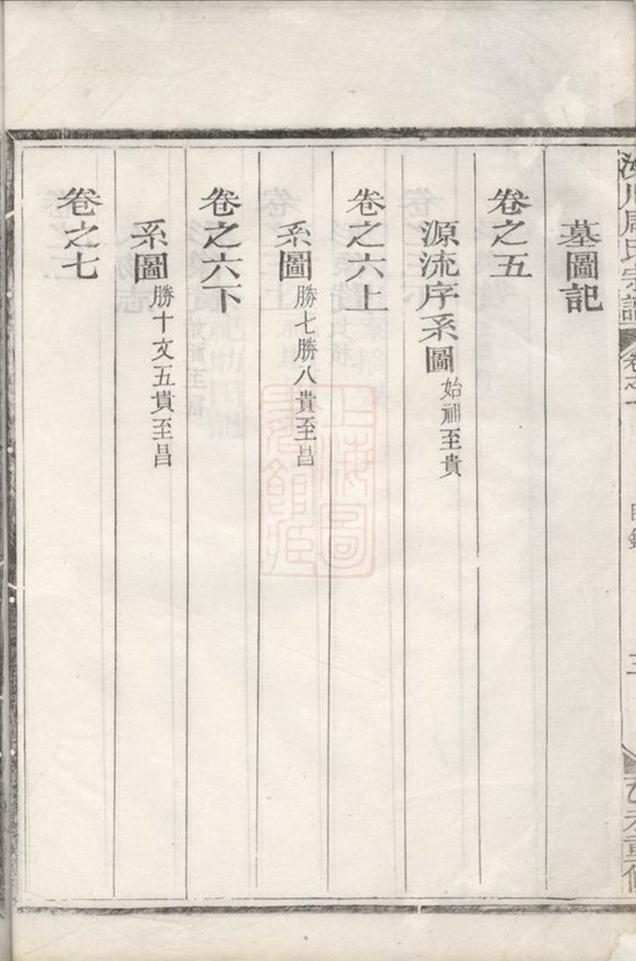 墓圖記
卷之五
源流序系圖始祖至貴
卷之六上
系圖勝七勝八貴至昌
卷之六下
系圖勝十文五貴至昌
卷之七
周氏宗譜
卷之
目錄
三
上海圖
書館藏